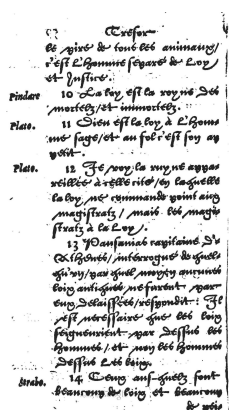 Tresor
le pire de tous les animaux/
c'est L'homme separé de Loy
et Justice.
Pindare
10 La loy est la royne des
mortelz/et immortelz.
Plato.
11 Dieu est la loy à L'hom=
me sage/et au fol c'est son ap
petit.
Plato.
12 Je voy la ruyne appa
reillée à celle cité/en laquelle
la loy ne commande point aux
magistratz / mais les magis
stratz à la Loy.
13 Pausanias capitaine d'A
Athenes/interrogué de quel=
qu'un/par quel moyen aucunes
loix antiques ne furent par
eux delaissées/respondit: Il
est necessaire que les loix
seigneurient par dessus les
hommes/et non les hommes
dessus Les loix.
Strabo.
14 Ceux ausquelz sont
beaucoup de loix et beaucoup
de pois